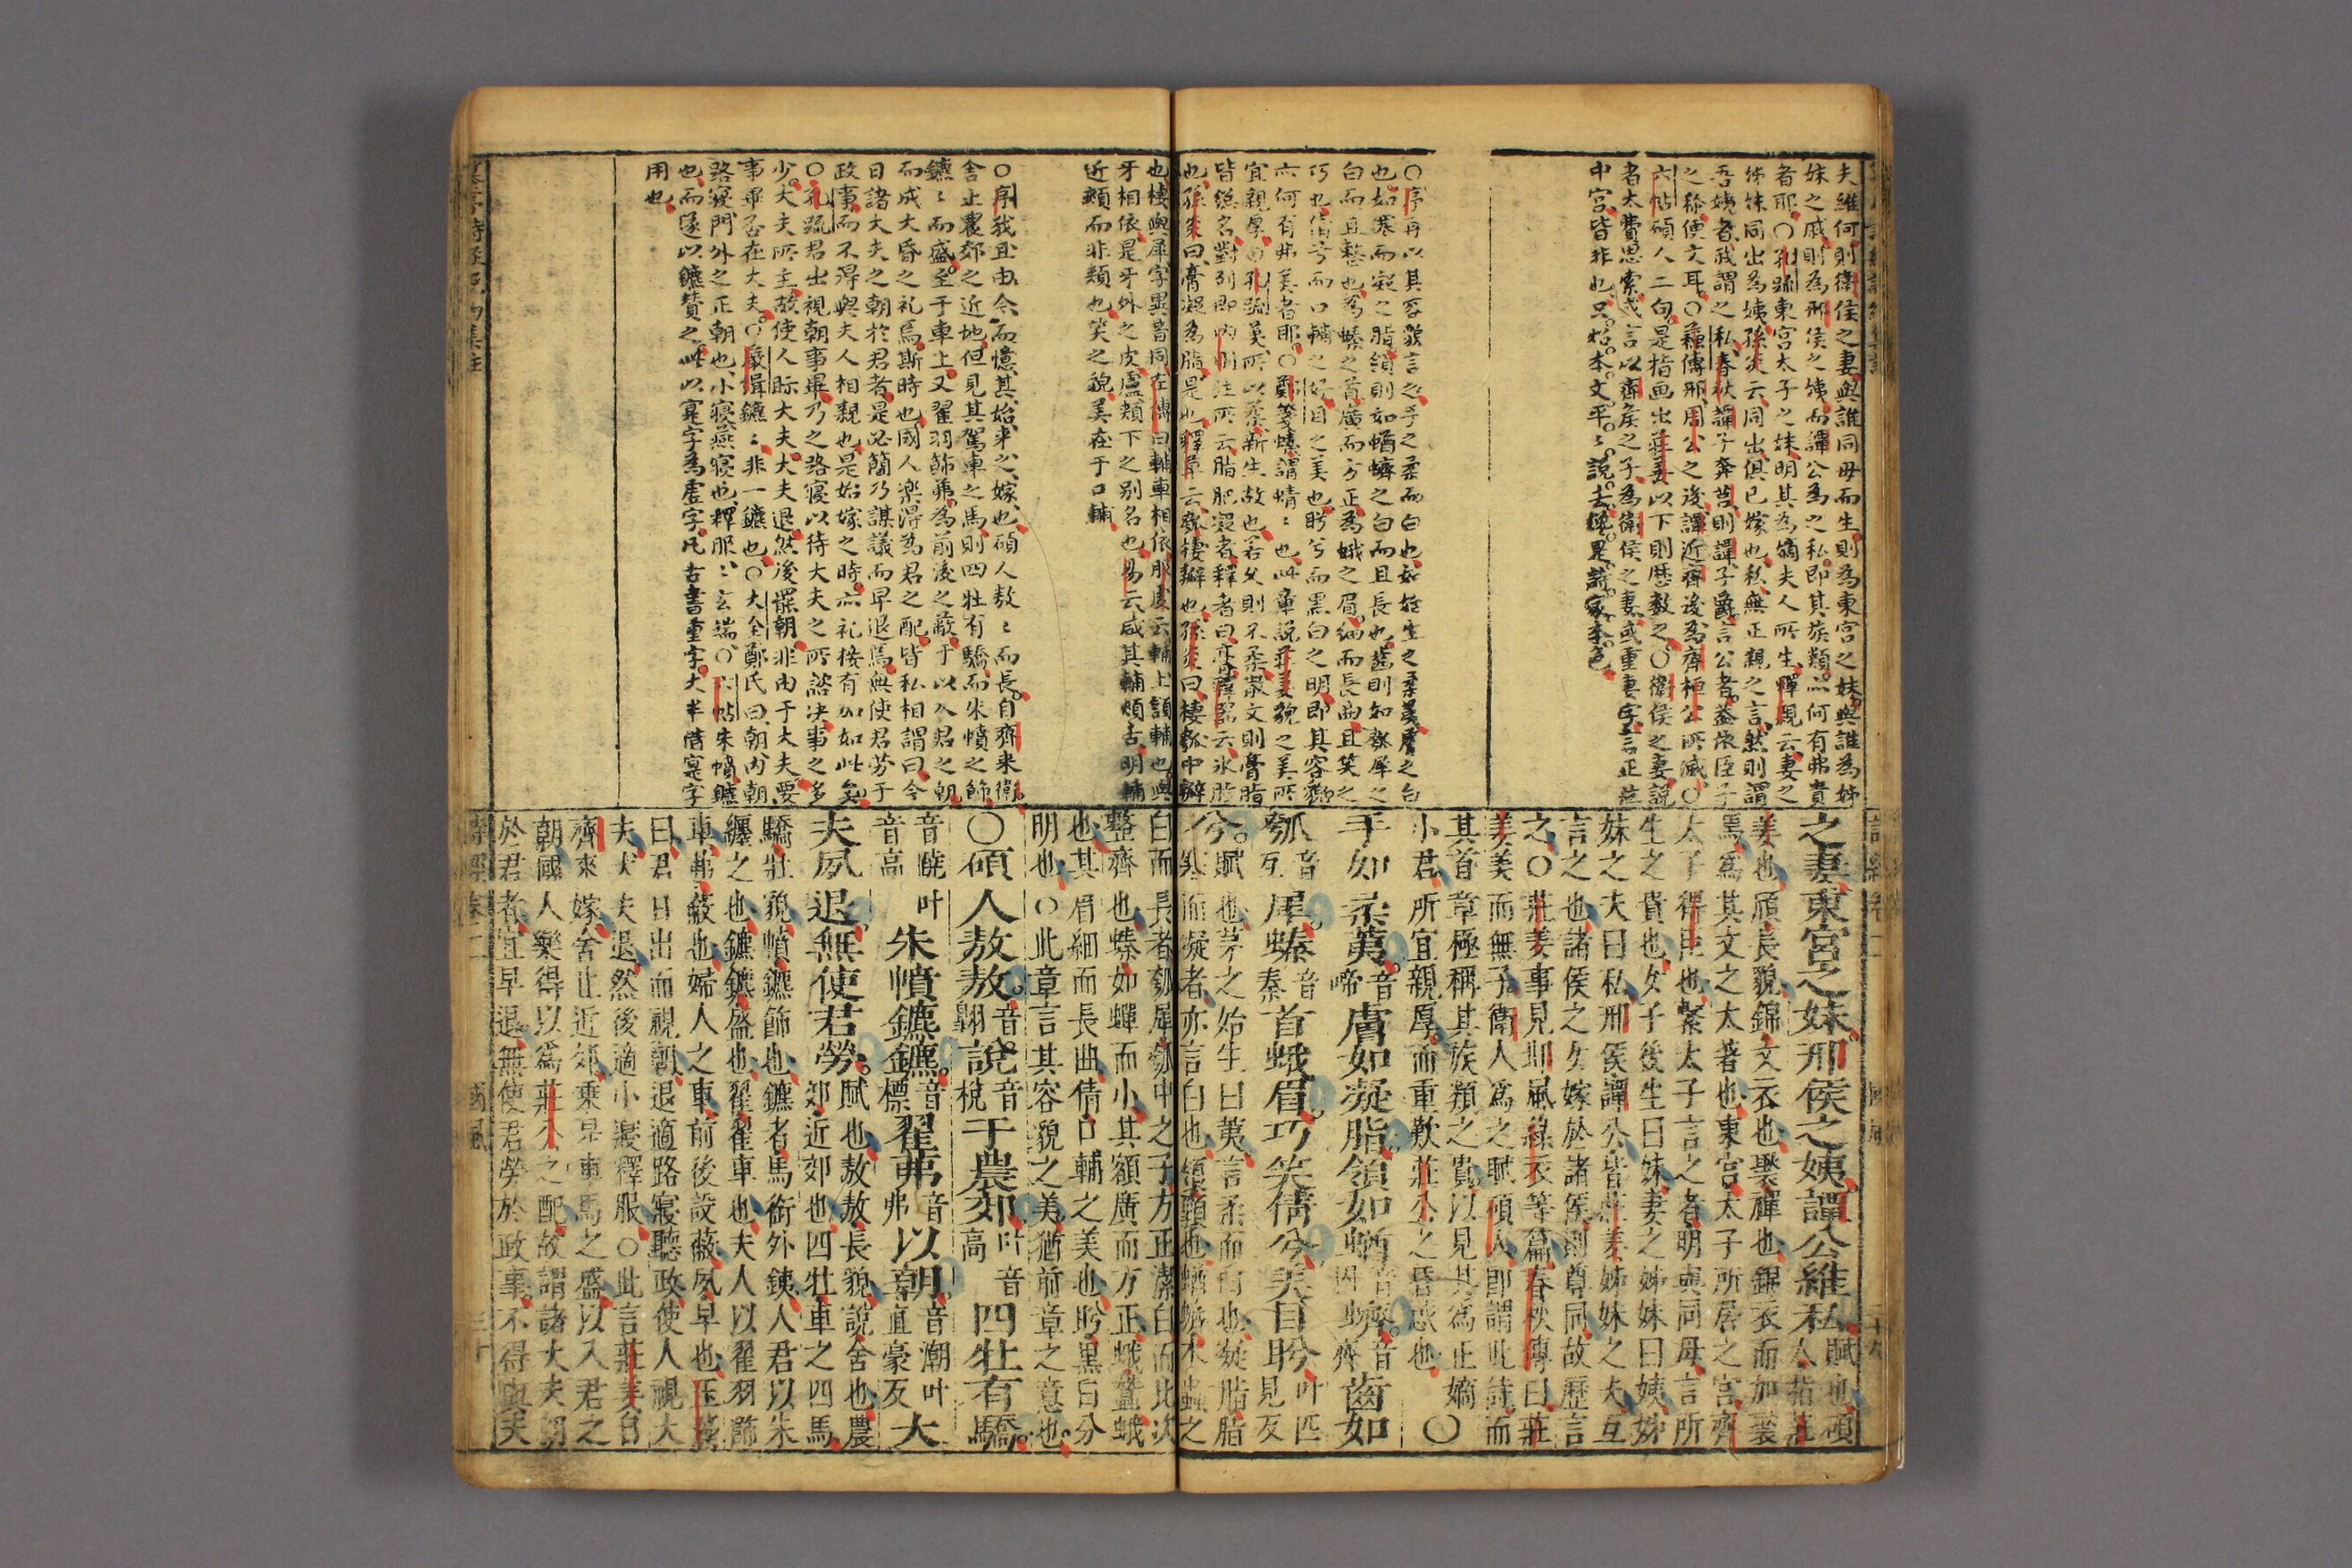 夫維何則衛侯之妻與誰同母而生則為東宮之妹與誰為姊
妹之戚則為邢侯之姨而譚公為之私即其族類亦何有弗貴
者耶〇孔疏東宮太子之妹明其為嫡夫人所生釋親云妻之
姊妹同出為姨孫炎云同出俱已嫁也私無正親之言然則謂
吾姨者我謂之私春秋譚子奔莒則譚子爵言公者蓋依臣子
之稱便文耳〇蘇傳邢周公之後譚近齊後為齊桓公所滅〇
六帖碩人二句是指画出莊姜以下則歷數之〇衛侯之妻說
者太費思索或言以齊侯之子為衛侯之妻或重妻字言正位
中宮皆非也只如本文平平說去便是詩家本色
〇序再以其容貌言之手之柔而白也如始生之柔荑膚之白
也如寒而凝之脂領則如蝤蠐之白而且長也齒則如瓠犀之
白而且整也為螓之首廣而方正為蛾之眉細而長曲且笑之
巧也倩兮而口輔之好目之美也盼兮而黑白之明即其容貌
亦何有弗美者耶〇鄭箋螓謂蜻蜻也此章說莊姜貌之美所
宜親厚〇孔疏荑所以柔新生故也若久則不柔
皆總名對列即內則注所云脂肥凝者釋者曰膏釋器云冰脂
也孫炎曰膏凝為脂是也釋草云瓠棲瓣也孫炎曰棲瓠中瓣
也棲與犀字異音同左傳曰輔車相依服虔云輔上頷輔也與
牙相依是牙外之皮膚頰下之別名也易云咸其輔頰舌明輔
近頰而非頰也笑之貌美在于口輔
〇序我且由今而憶其始來之嫁也碩人敖敖而長自齊來衛
舍止農郊之近地但見其駕車之馬則四牡有驕而朱幩之飾
鑣鑣而盛至于車上又翟羽飾茀為前後之蔽于以入君之朝
而成大昏之礼焉斯時也國人楽得為君之配皆私相謂曰今
日諸大夫之朝於君者是必簡乃謀議而早退焉無使君劳于
政事而不得與夫人相親也是始嫁之時亦礼接有加如此矣
〇孔疏君出視朝事畢乃之路寢以待大夫之所諮決事之多
少大夫所主故使人眎大夫大夫退然後罷朝非由于大夫要
事畢否在大夫〇嚴緝鑣鑣非一鑣也〇大全鄭氏曰朝內朝
路寢門外之正朝也小寢燕寢也釋服服玄端〇六帖朱幩鑣
也而遂以鑣贊之此以寔字為虛字凡古書重字大半借寔字
用也
之妻東宮之妹邢侯之姨譚公維私賦也碩
人指莊
姜也頎長貌錦文衣也褧禪也錦衣而加褧
焉為其文之太著也東宮太子所居之宮齊
太子得臣也繫太子言之者明與同母言所
生之貴也女子後生曰妹妻之姊妹曰姨姊
妹之夫曰私邢侯譚公皆莊姜姊妹之夫互
言之也諸侯之女嫁於諸侯則尊同故歷言
之〇莊姜事見邶風綠衣等篇春秋傳曰莊
姜美而無子衛人為之賦碩人即謂此詩而
其首章極稱其族類之貴以見其為正嫡
小君所宜親厚而重歎莊公之昏惑也〇
手如柔荑音
啼膚如凝脂領如蝤音
囚蠐音
齊齒如
瓠音
互犀螓音
秦首蛾眉巧笑倩兮美目盼叶匹
見反
兮賦也茅之始生曰荑言柔而白也凝脂脂
寒而凝者亦言白也領頸也蝤蠐木蟲之
白而長者瓠犀瓠中之子方正潔白而比次
整齊也螓如蟬而小其額廣而方正蛾蠶蛾
也其眉細而長曲倩口輔之美也盼黑白分
明也〇此章言其容貌之美猶前章之意也
〇碩人敖敖音
翺說音
稅于農郊叶音
高四牡有驕
音曉叶
音高朱幩鑣鑣音
標翟茀音
弗以朝音潮叶
直豪反大
夫夙退無使君勞賦也敖敖長貌說舍也農
郊近郊也四牡車之四馬
驕壯貌幩鑣飾也鑣者馬銜外鐵人君以朱
纒之也鑣鑣盛也翟翟車也夫人以翟羽飾
車茀蔽也婦人之車前後設蔽夙早也玉藻
曰君日出而視朝退適路寢聽政使人視大
夫大夫退然後適小寢釋服〇此言莊姜自
齊來嫁舍止近郊乗是車馬之盛以入君之
朝國人樂得以為莊公之配故謂諸大夫朝
於君者宜早退無使君勞於政事不得與夫